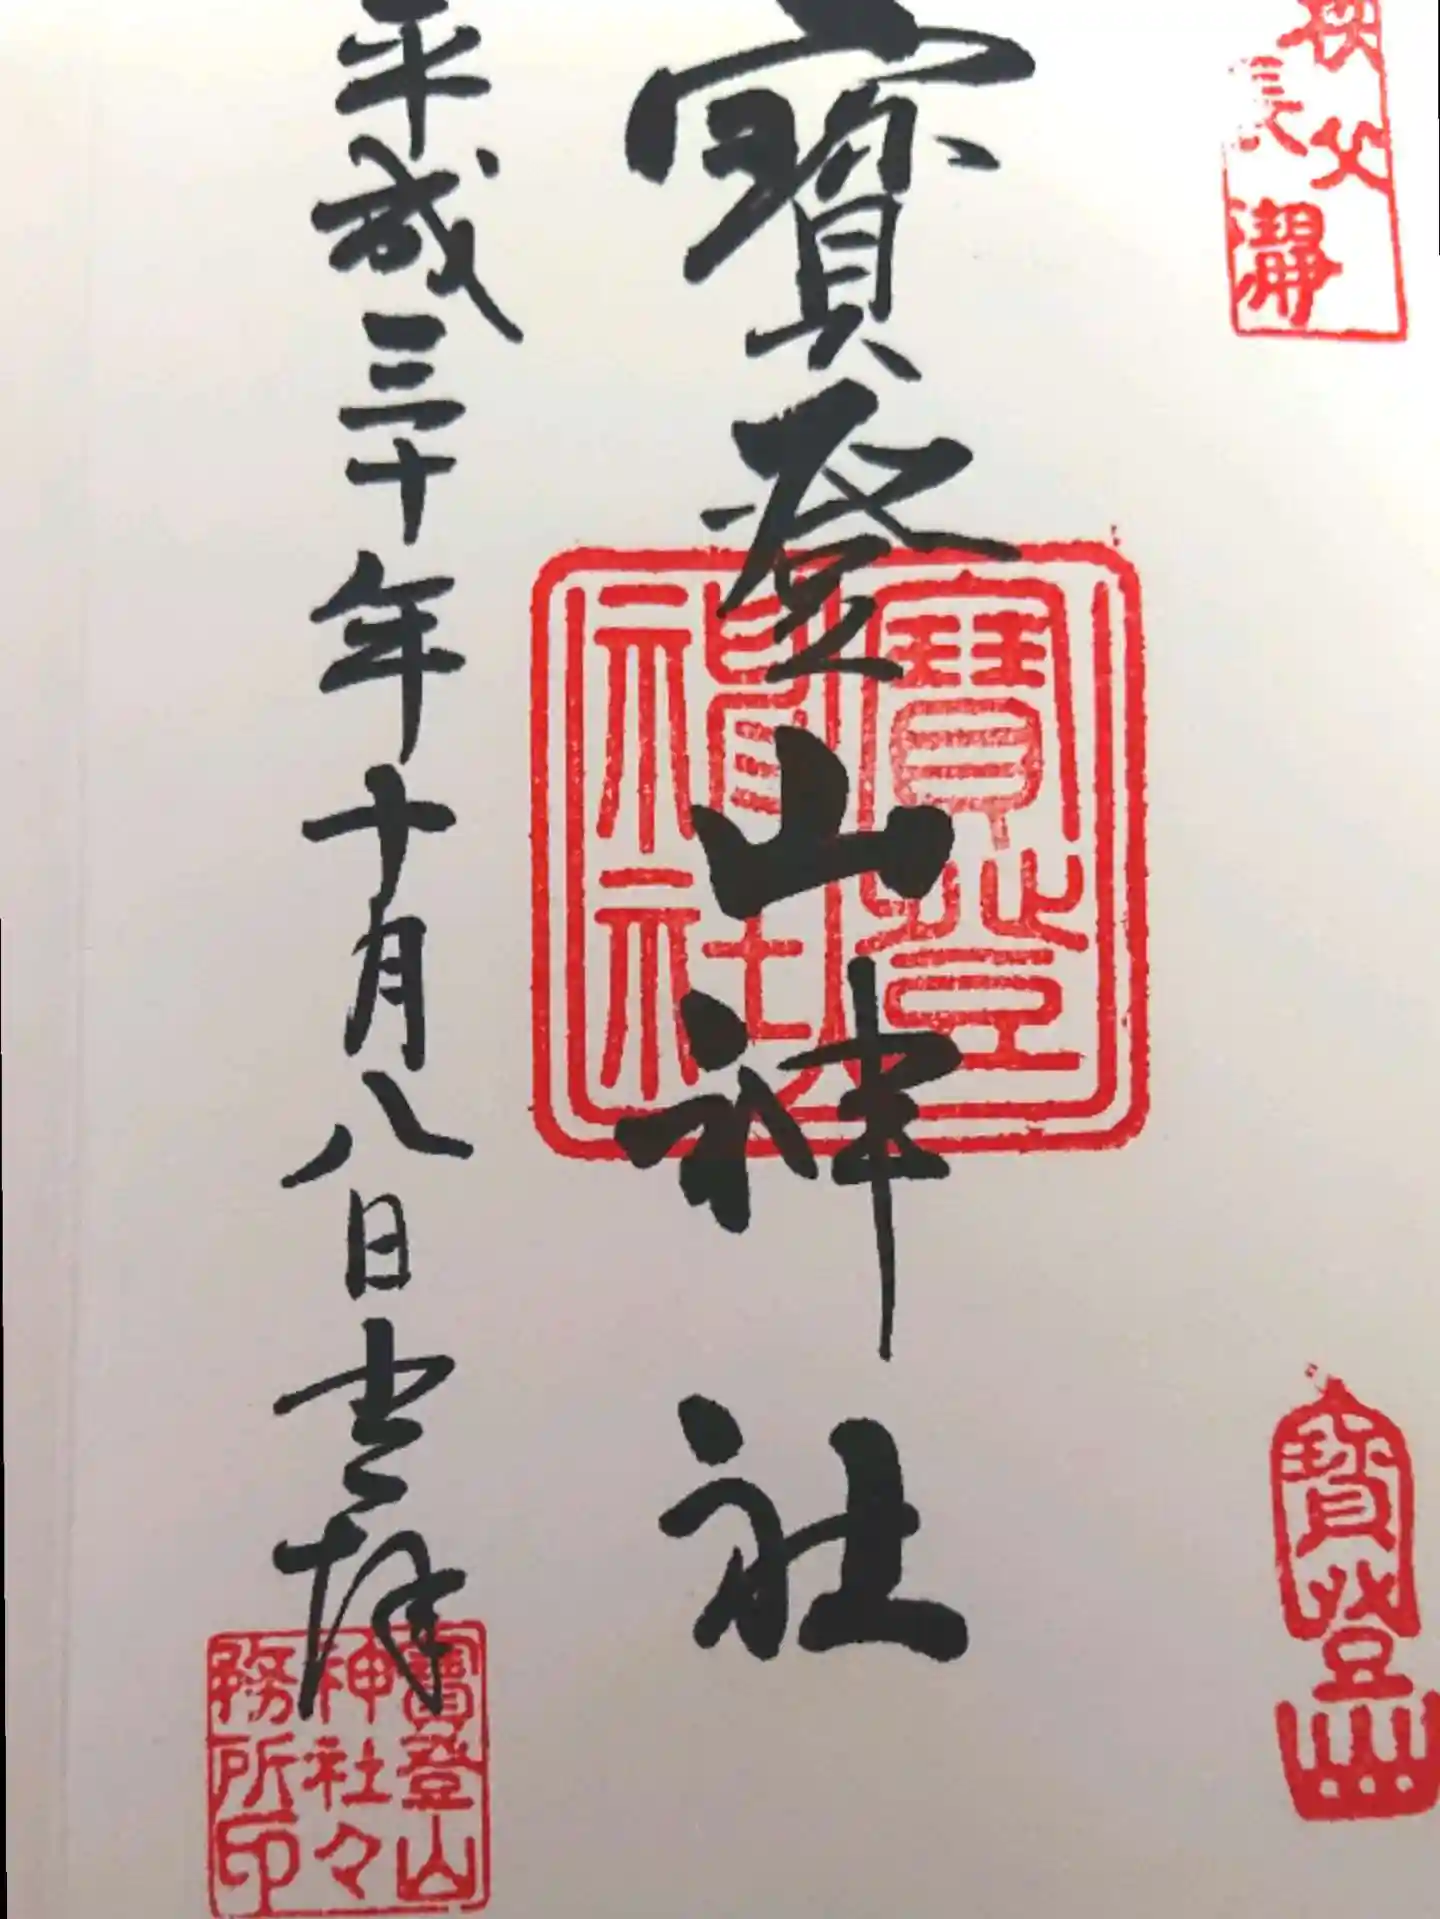 秩父
長瀞
寶登山
寶登山神社
寶登
神社
平成三十年十月八日書拝
寶登山
神社々
務所印